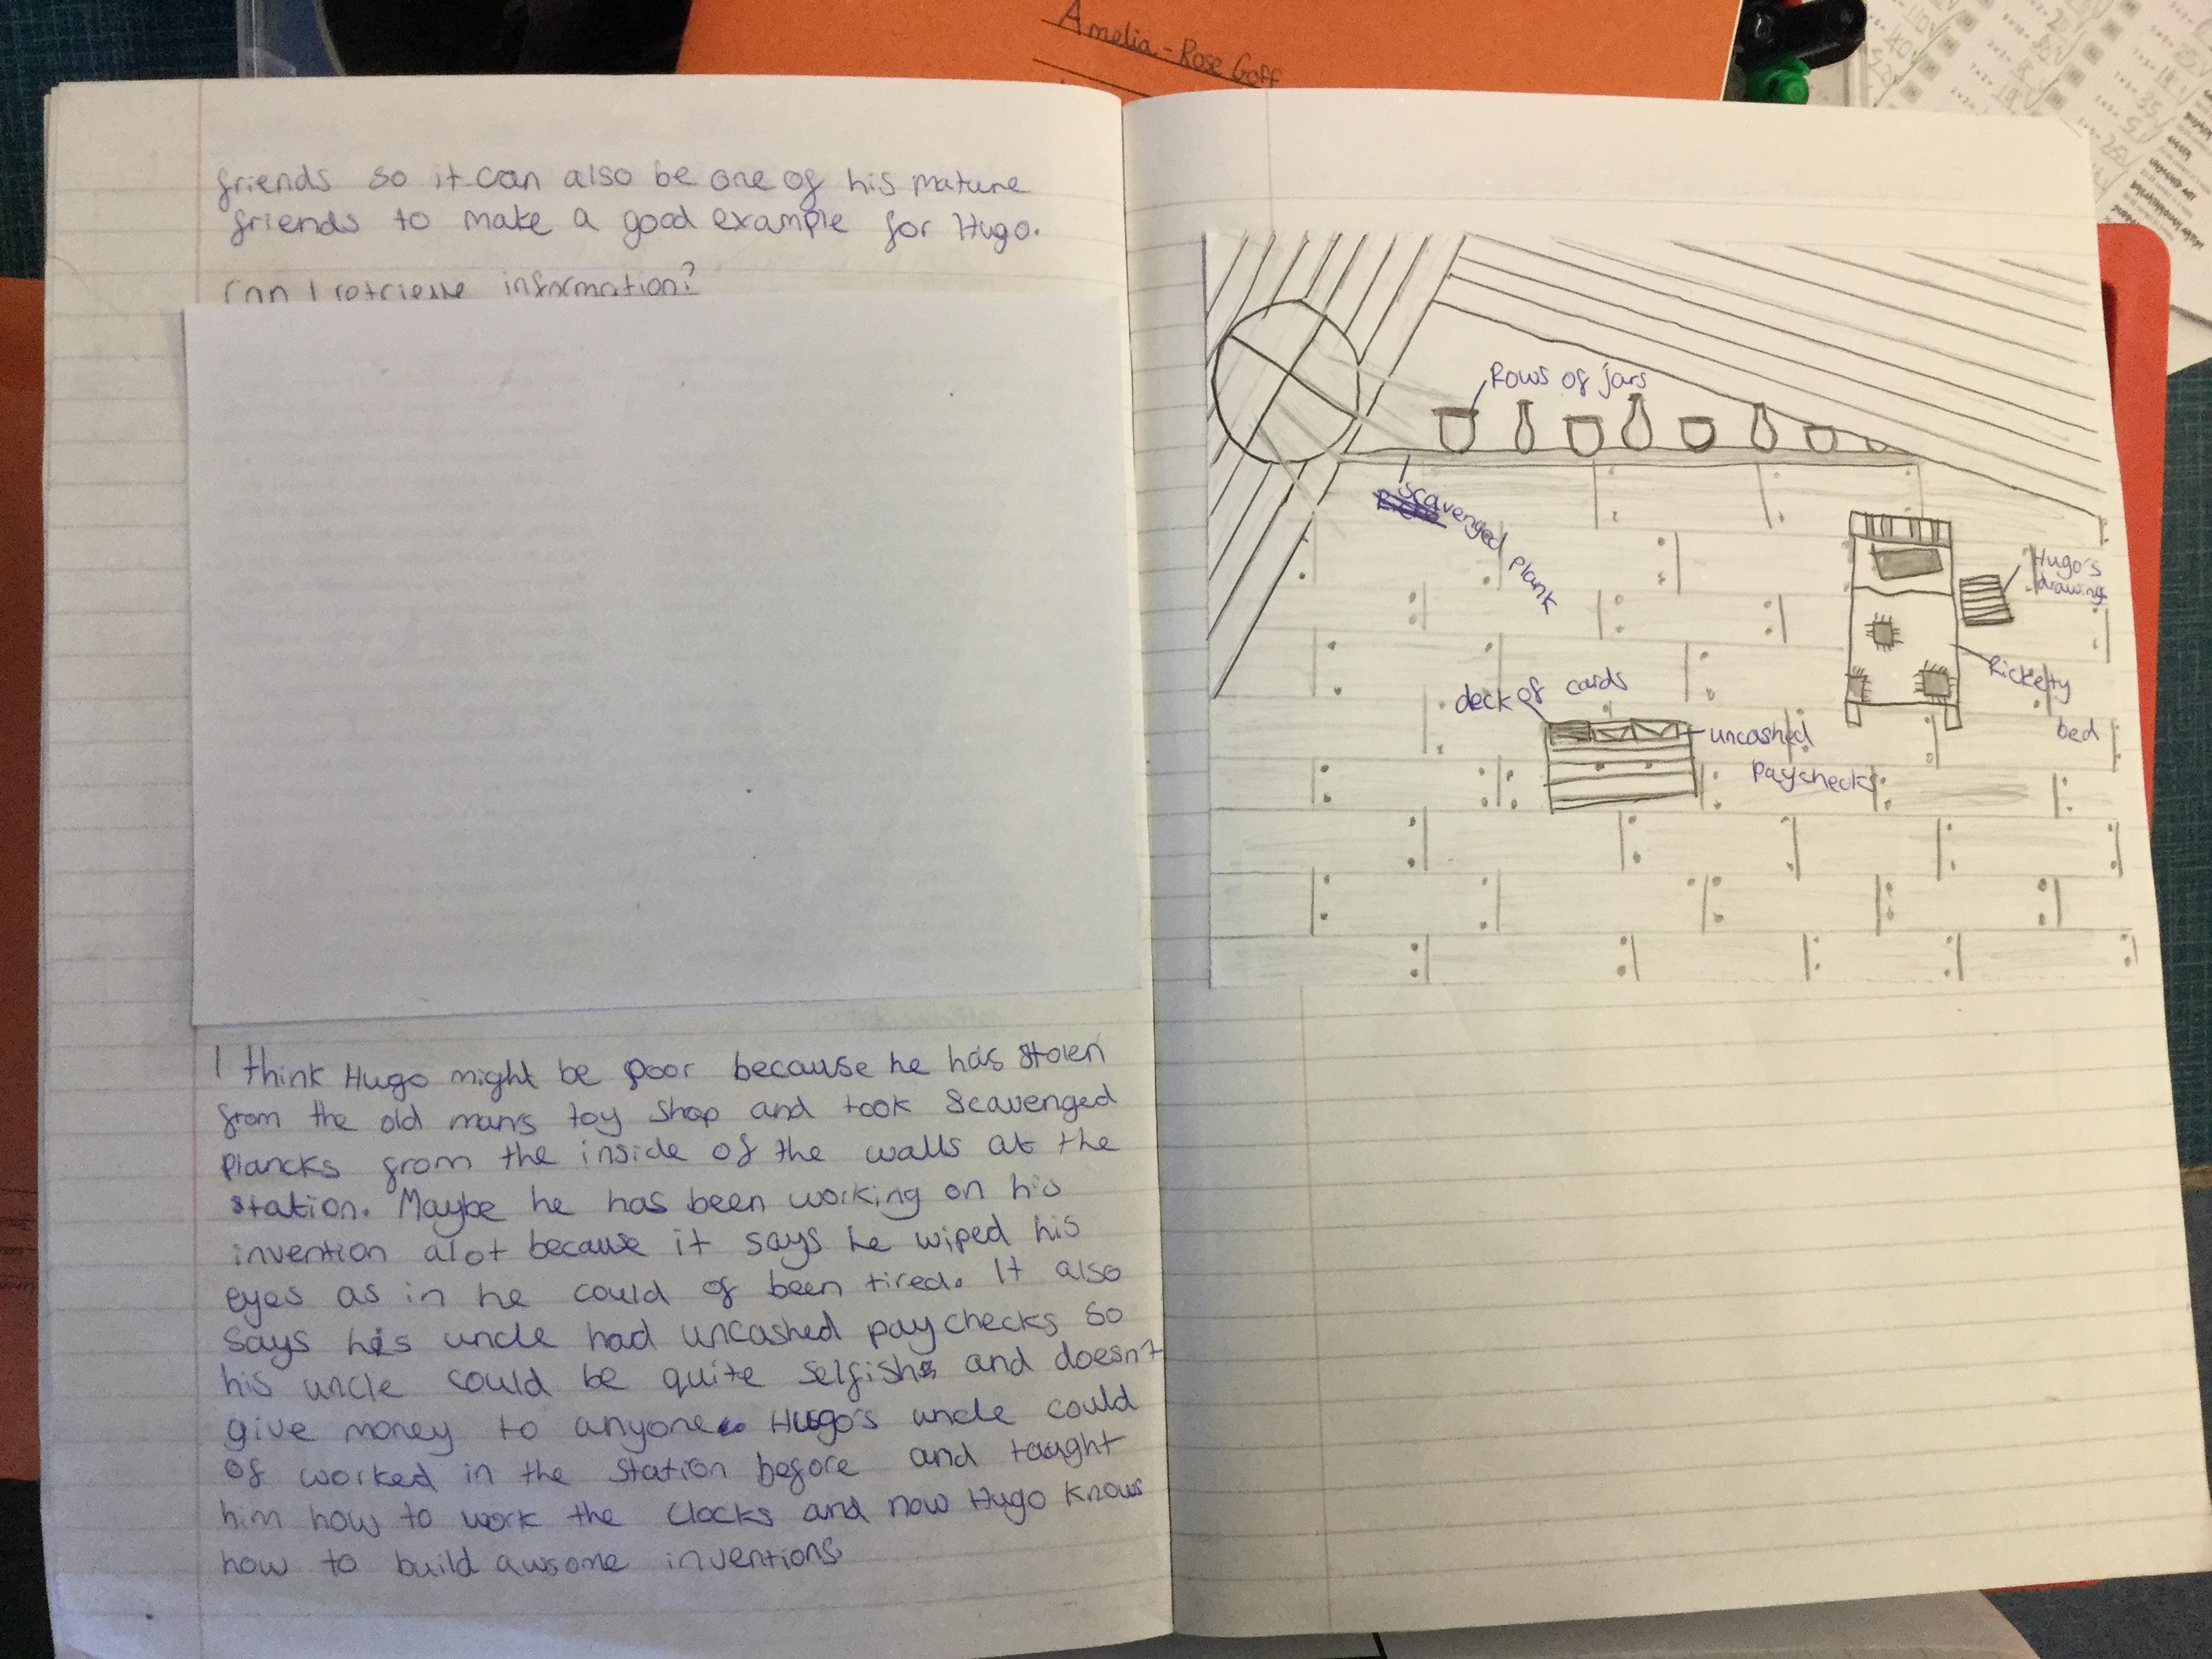 Amelia-Rose Goff
friends so it can also be one of his mature
friends to make a good example for Hugo.
Can I retrieve information?
I think Hugo might be poor because he has stolen
from the old man's toy shop and took scavenged
plancks from the inside of the walls at the
station. Maybe he has been working on his
invention alot because it says he wiped his
eyes as in he could of been tired. It also
says his uncle had uncashed paychecks so
his uncle could be quite selfish and doesn't
give money to anyone. Hugo's uncle could
of worked in the station before and taught
him how to work the clocks and now Hugo knows
how to build awsome inventions
Rows of jars
scavenged plank
Hugo's
drawings
Rickety
bed
deck of cards
uncashed
paychecks